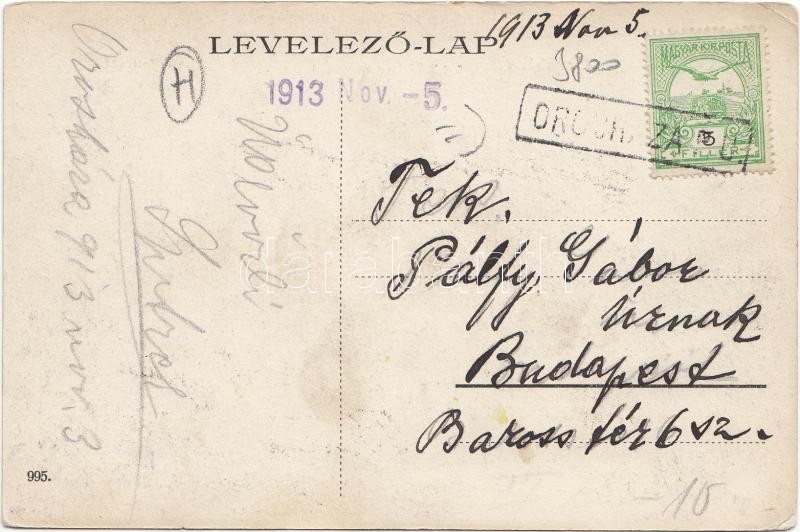 1913 Nov 5.
LEVELEZŐ-LAP
H
3800
1913 Nov. -5.
MAGYAR KIR. POSTA
5
FILLÉR
Üdvözli
913 nov. 3
Tek.
Pálfy Gábor
úrnak
Budapest
Baross tér 6 sz.
darabanth
995.
-10